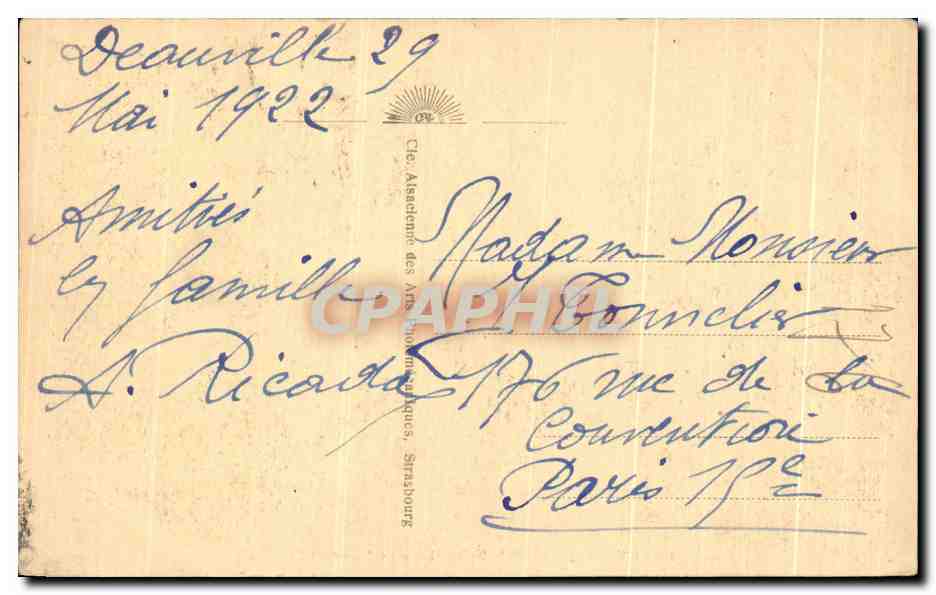 Deauville 29
Mai 1922
Amitiés
en famille
A. Ricada
Cie. Alsacienne des Arts Photomécaniques, Strasbourg
CPAPHIL
Madame Monsieur
Tonnelier
176 rue de la
Convention
Paris 15e